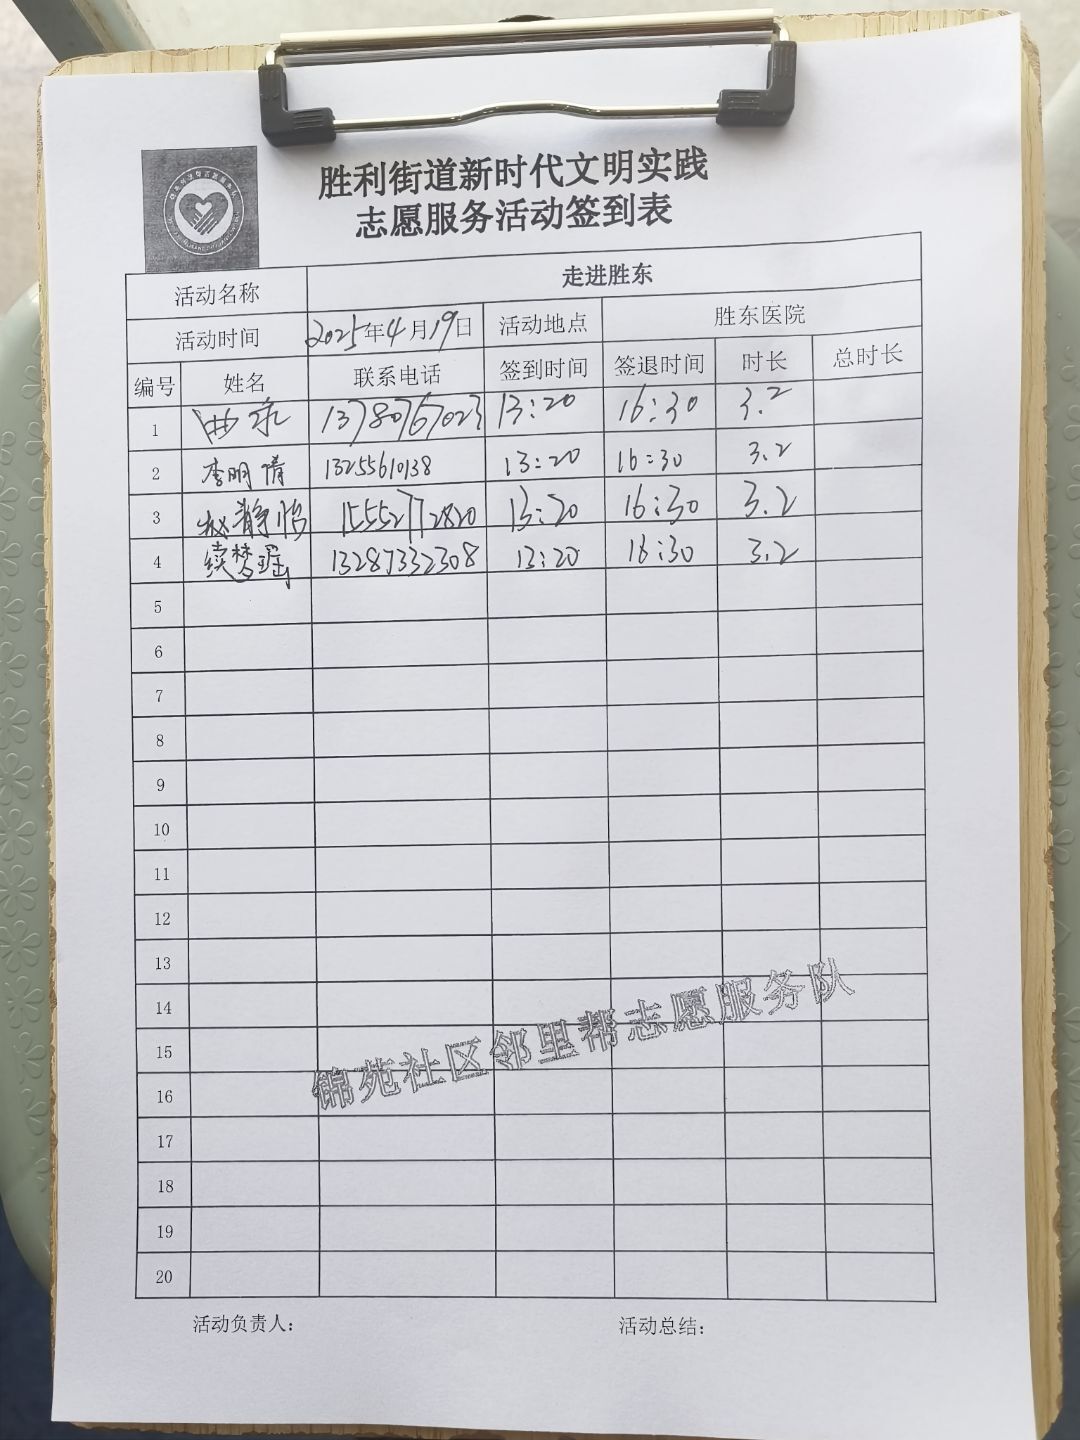 胜利街道新时代文明实践
志愿服务活动签到表
活动名称 走进胜东
活动时间 2025年4月19日 活动地点 胜东医院
编号 姓名 联系电话 签到时间 签退时间 时长 总时长
1 曲 13780767023 13:20 16:30 3.2
2 李明倩 13255610138 13:20 16:30 3.2
3 赵静怡 15552772820 13:20 16:30 3.2
4 续梦瑶 13287332308 13:20 16:30 3.2
5
6
7
8
9
10
11
12
13
14
15
16
17
18
19
20
锦苑社区邻里帮志愿服务队
活动负责人: 活动总结: